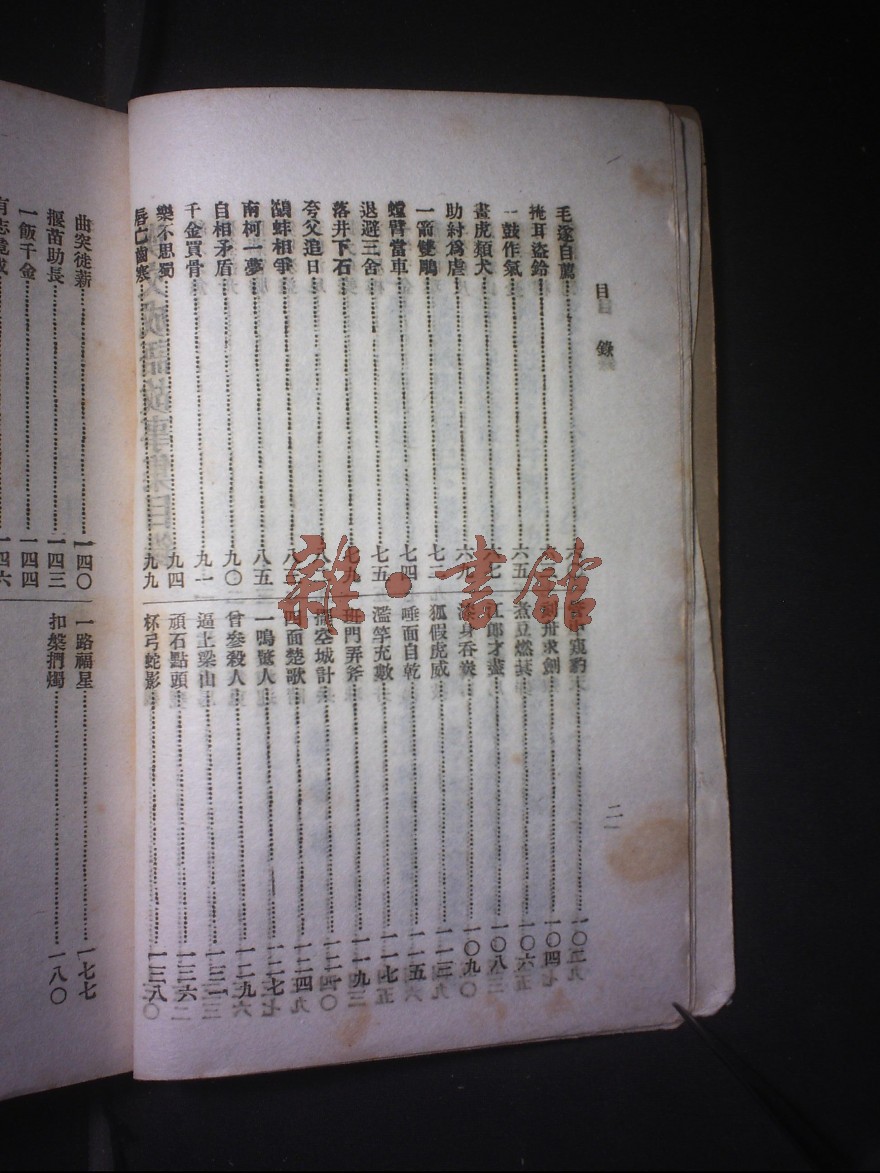 目錄
二
毛遂自薦
掩耳盜鈴
一鼓作氣……六五
畫虎類犬……六七
助紂爲虐……六九
一箭雙鵰……七二
螳臂當車……七四
退避三舍……七五
落井下石……七九
夸父追日
鷸蚌相爭……八二
南柯一夢……八五
自相矛盾……九〇
千金買骨……九一
樂不思蜀……九四
唇亡齒寒……九九
管中窺豹……一〇二
刻舟求劍……一〇四
煮豆燃萁……一〇六
江郎才盡……一〇八
漆身吞炭……一〇九
狐假虎威……一一三
唾面自乾……一一五
濫竽充數……一一七
班門弄斧……一一九
擺空城計……一二一
四面楚歌……一二四
一鳴驚人……一二七
曾參殺人……一二九
逼上梁山……一三一
頑石點頭……一三六
杯弓蛇影……一三八
曲突徙薪……一四〇
揠苗助長……一四三
一飯千金……一四四
有志竟成……一四六
一路福星……一七七
扣槃捫燭……一八〇
雜·書館